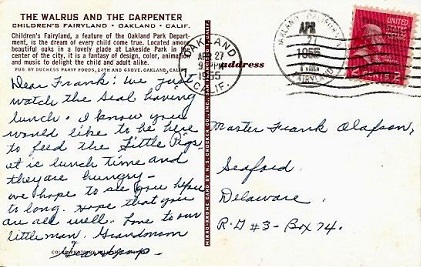 THE WALRUS AND THE CARPENTER
CHILDREN'S FAIRYLAND • OAKLAND • CALIF.
Children's Fairyland, a feature of the Oakland Park Department, is the dream of every child come true. Located among
beautiful oaks in a lovely glade at Lakeside Park in
center of the city, it is a fantasy of design, color, animation
and music to delight the child and adult alike.
PUB. BY DUCHESS PARTY FOODS, 12TH AND GROVE, OAKLAND, CALIF.
Dear Frank: We just
watch the Seal having
lunch. I know you
would like to be here
to feed the Little Pigs.
it is lunch time and
they are hungry -
we hope to see you before
to long. hope that you
are all well. Love to our
little man. Grandmom
COLOR
address
OAKLAND
APR 27
9 PM
1955
CALIF.
APR
1955
FAIRYLAND
UNITED STATES
2
Master Frank Olafson,
Seaford
Delaware.
R-D #3 - Box 74.